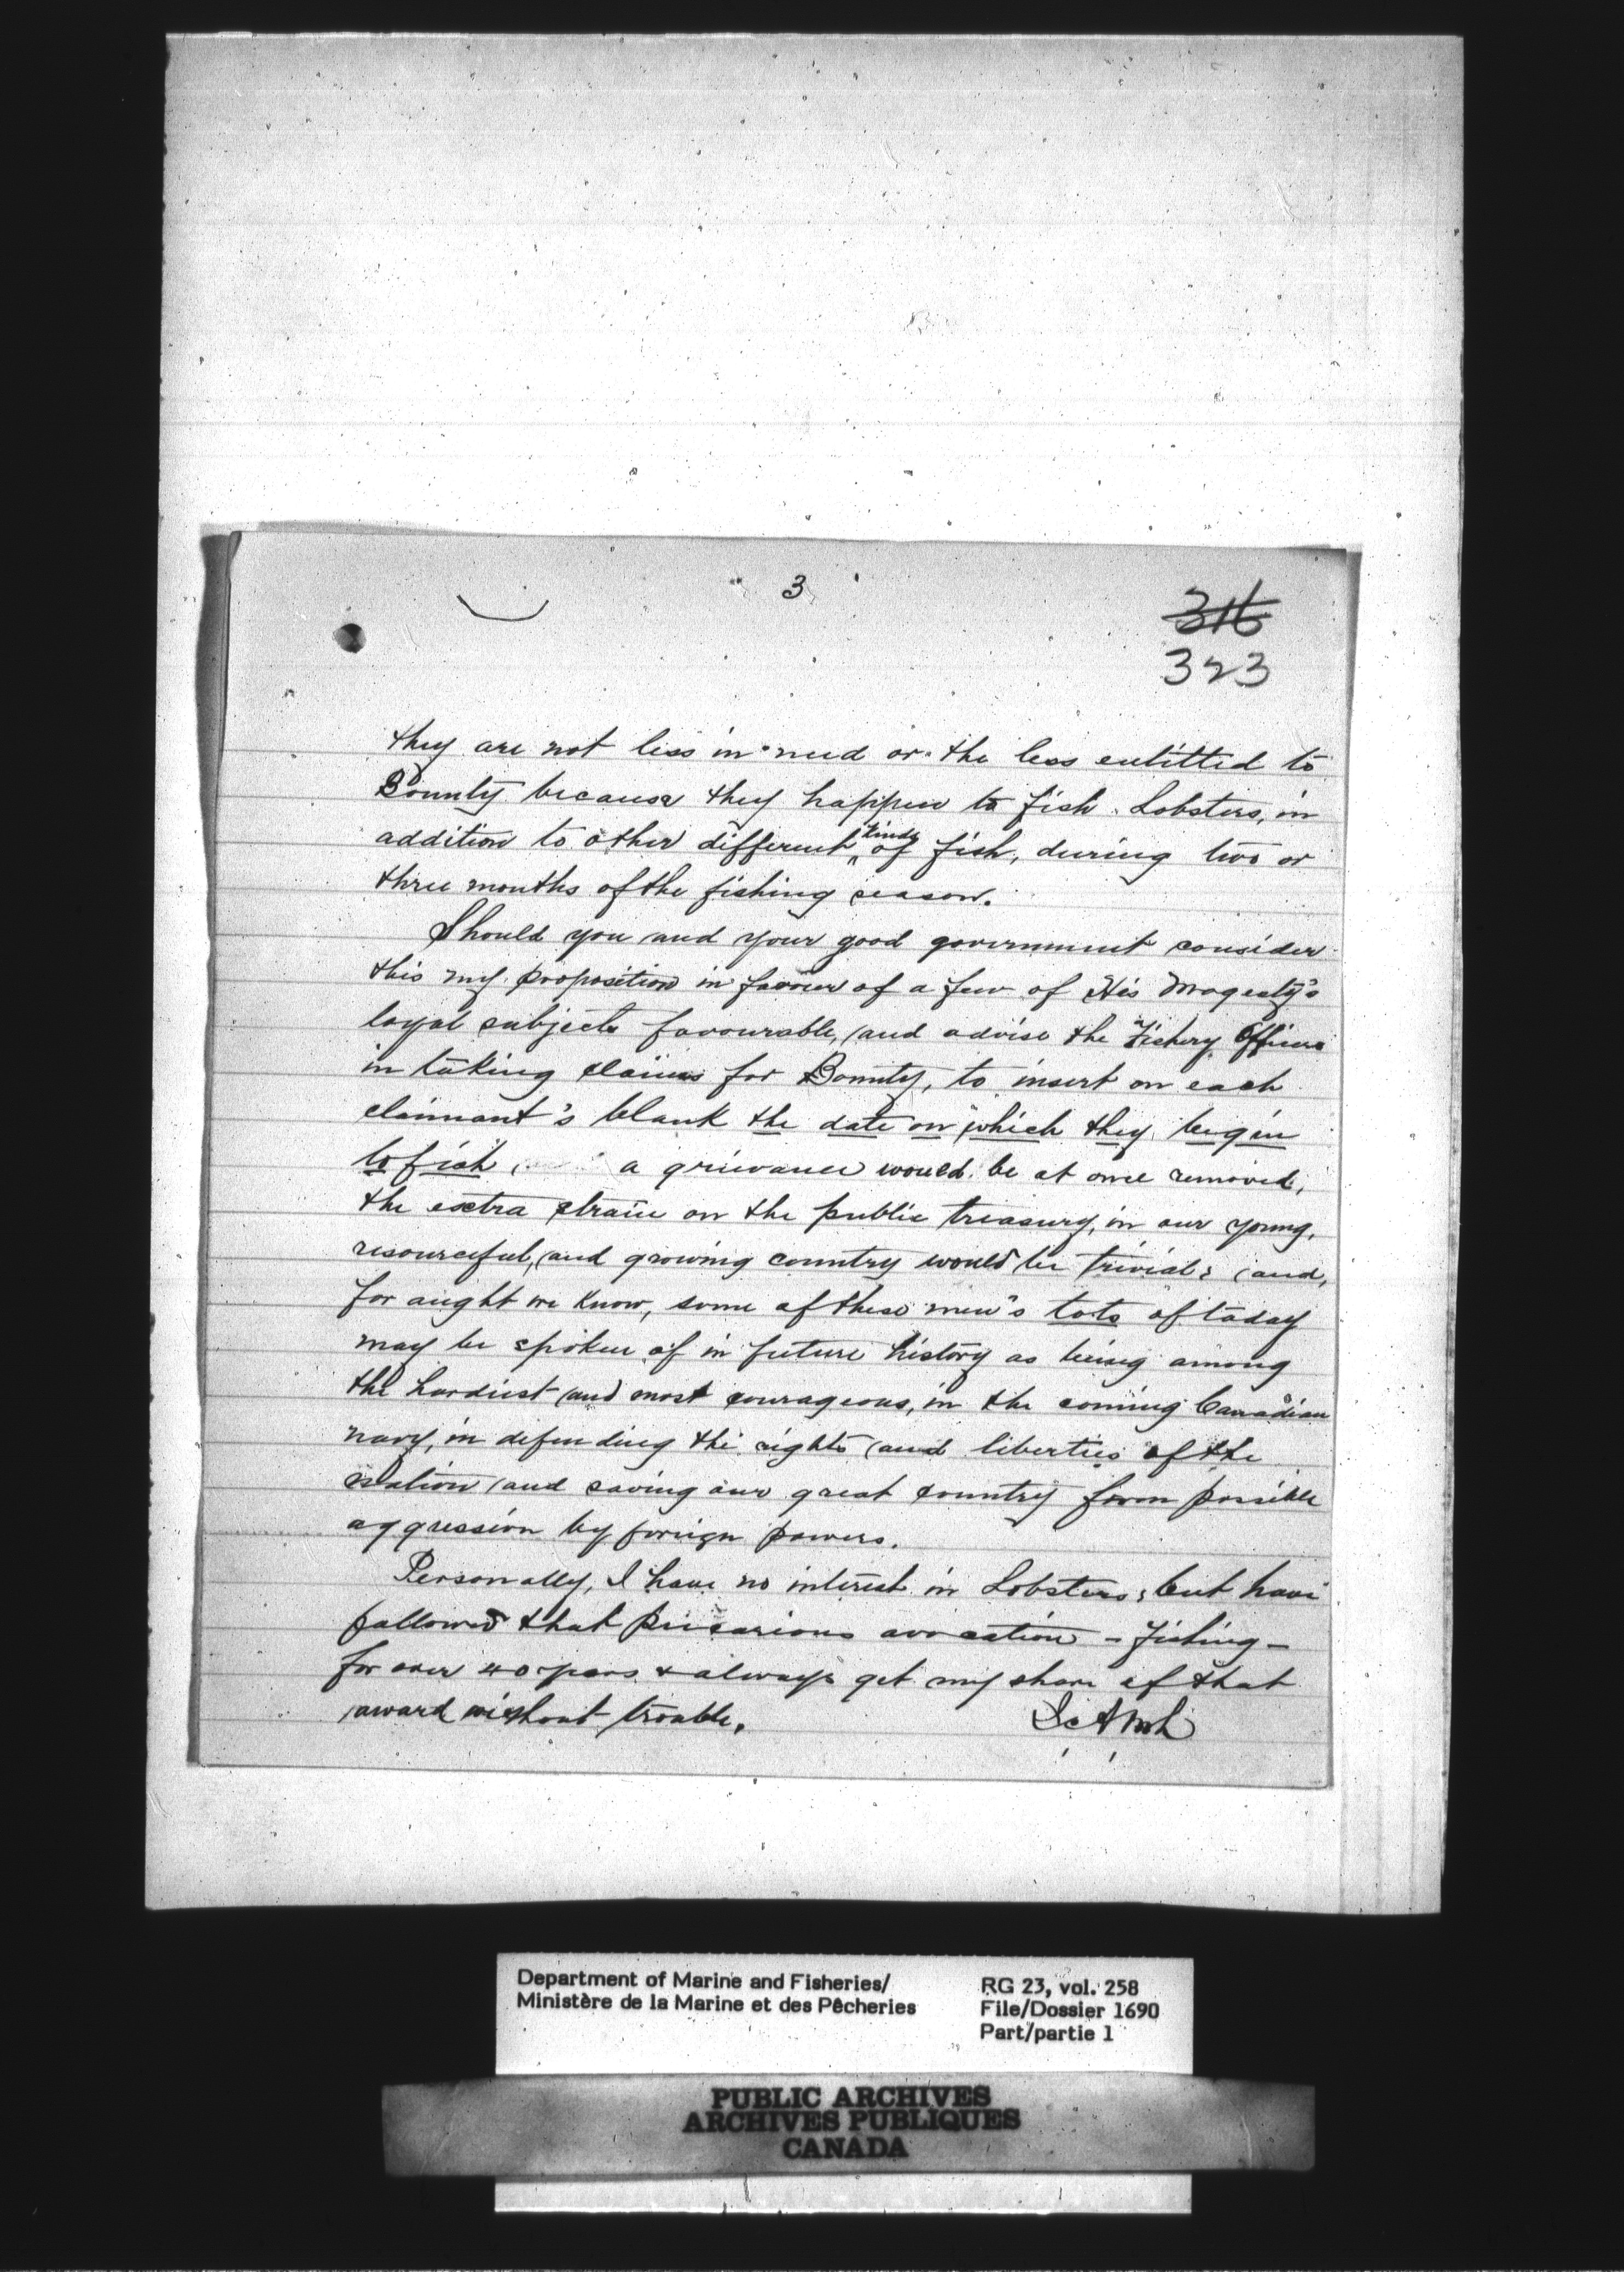 3
316
323
they are not less in need or the less entitled to
Bounty because they happen to fish Lobsters, in
addition to other different kinds of fish, during two or
three months of the fishing season.
Should you and your good government consider
this my proposition in favour of a few of His Magesty's
loyal subjects favourable, and advise the Fishery Officers
in taking claims for Bounty, to insert on each
claimant's blank the date on which they begin
to fish, a grievance would be at once removed,
the extra strain on the public treasury, in our young,
resourceful, and growing country would be trivial; and,
for aught we know, some of these men's tots of today
may be spoken of in future history as being among
the hardiest and most courageous, in the coming Canadian
navy, in defending the rights and liberties of the
nation and saving our great country from possible
aggression by foreign powers.
Personally, I have no interest in Lobsters; but have
followed that precarious avocation - fishing -
for over 40 years & always get my share of that
award without trouble.
Department of Marine and Fisheries/
Ministère de la Marine et des Pêcheries
RG 23, vol. 258
File/Dossier 1690
Part/partie 1
PUBLIC ARCHIVES
ARCHIVES PUBLIQUES
CANADA